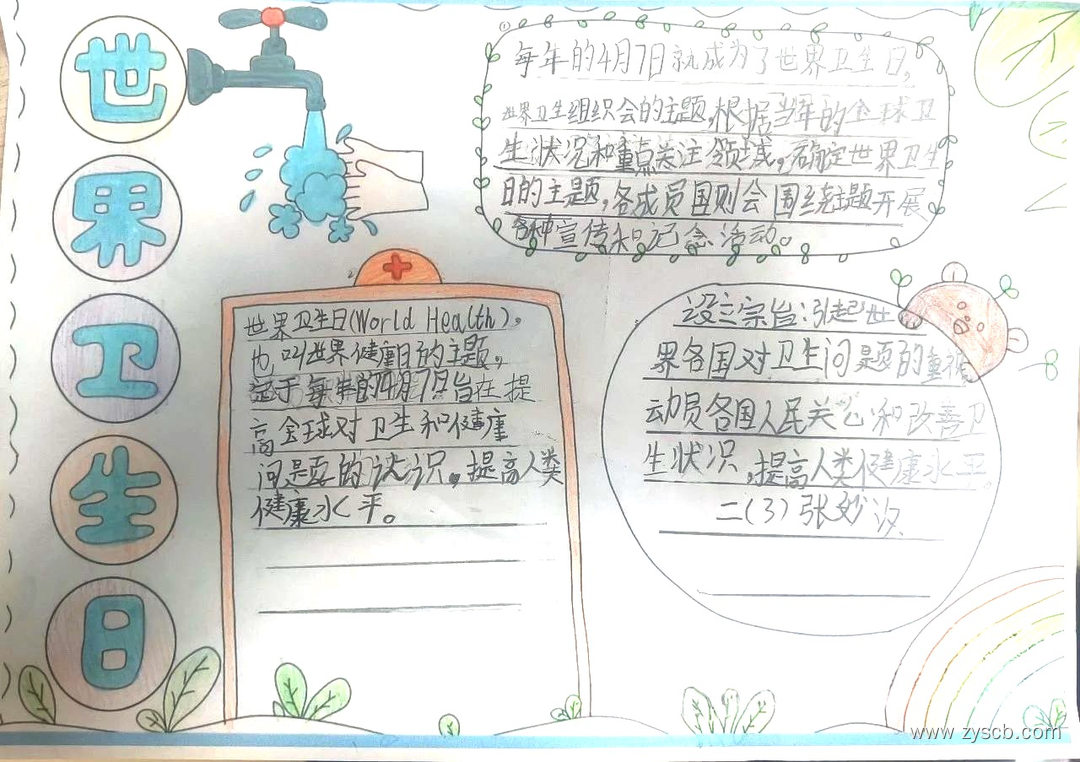 世
界
卫
生
日
每年的4月7日就成为了世界卫生日,
世界卫生组织会的主题,根据当年的全球卫
生状况和重点关注领域,确定世界卫生
日的主题,各成员国则会围绕主题开展
各种宣传和记念活动。
世界卫生日(World Health)。
也叫世界健康日的主题,
定于每年的4月7日旨在提
高全球对卫生和健康
问题的认识,提高人类
健康水平。
设立宗旨:引起世
界各国对卫生问题的重视
动员各国人民关心和改善卫
生状况,提高人类健康水平。
二(3)张妙汐
www.zyscb.com